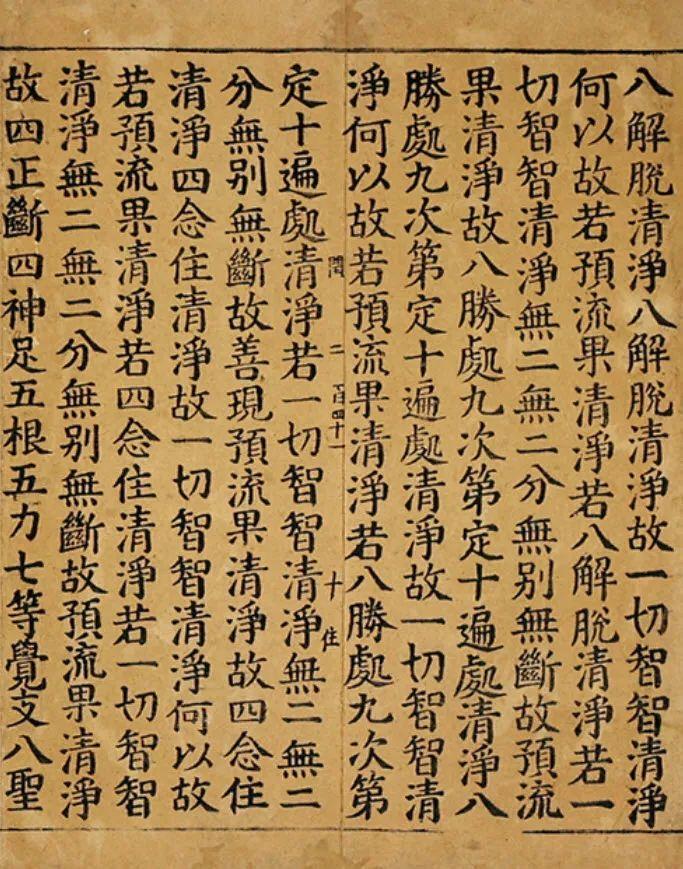 八解脫清淨八解脫清淨故一切智智清淨
何以故若預流果清淨若八解脫清淨若一
切智智清淨無二無二分無别無斷故預流
果清淨故八勝處九次第定十遍處清淨八
勝處九次第定十遍處清淨故一切智智清
淨何以故若預流果清淨若八勝處九次第
二 百四十一 十 住
定十遍處清淨若一切智智清淨無二無二
分無别無斷故善現預流果清淨故四念住
清淨四念住清淨故一切智智清淨何以故
若預流果清淨若四念住清淨若一切智智
清淨無二無二分無别無斷故預流果清淨
故四正斷四神足五根五力七等覺支八聖